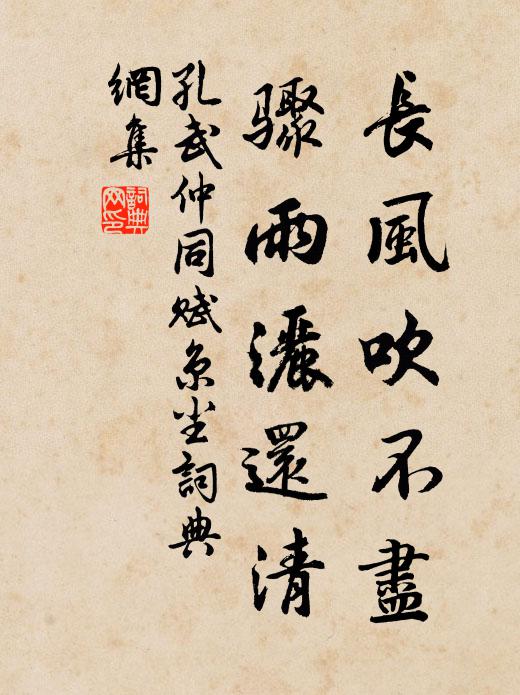 長風吹不盡
驟雨灑還清
孔武仲同賦京塵詞典
網集
詞典網印